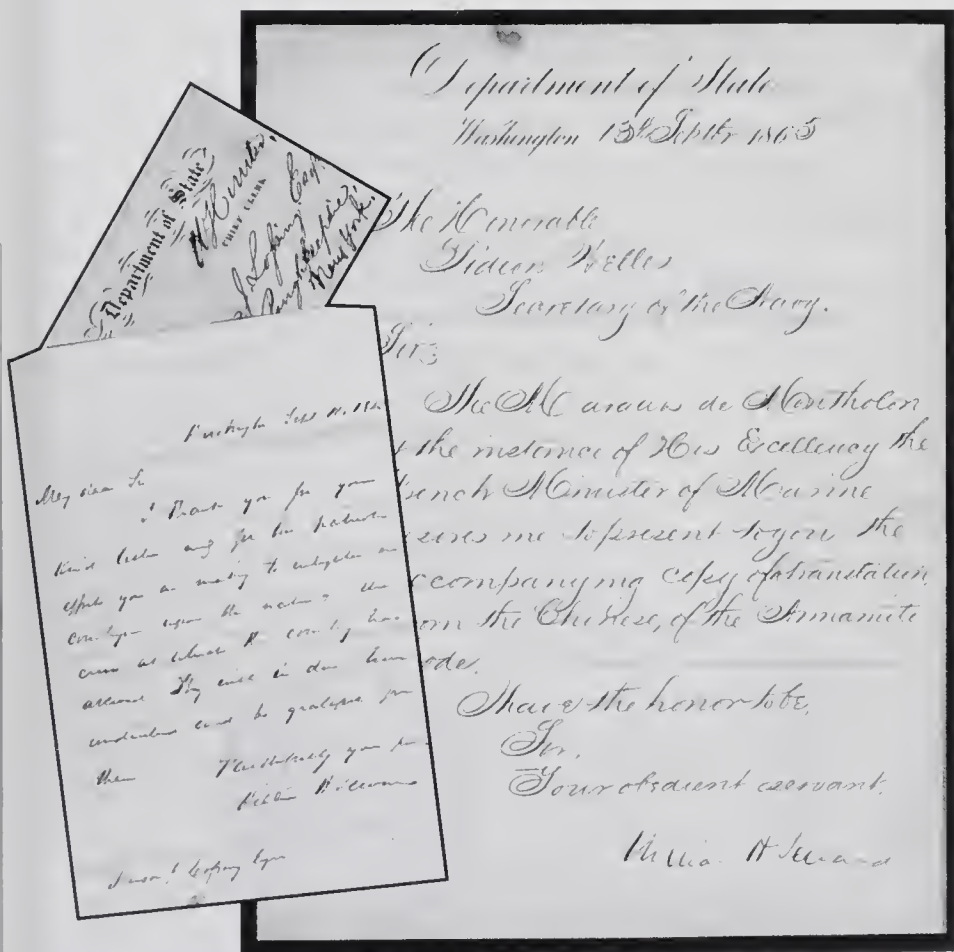 Department of State
Washington 13th Septbr 1865
The Honorable
Gideon Welles
Secretary of the Navy.
Sir,
The Marquis de Montholon
the instance of His Excellency the
French Minister of Marine
me to present to you the
ccompanying copy of translation
om the Chinese, of the Annamite
ode.
I have the honor to be,
Sir,
Your obedient servant,
William H Seward
Department of State
W Hunter,
CHIEF CLERK
J. Lossing Esqr.
Poughkeepsie,
New York.
Sept
My dear Sir
I Thank you for your
kind letter and for the patriotic
efforts you are making to enlighten our
upon the nature of the
crisis at which the country has
arrived They will in due time
and be grateful for
them Faithfully your
Lossing Esqr